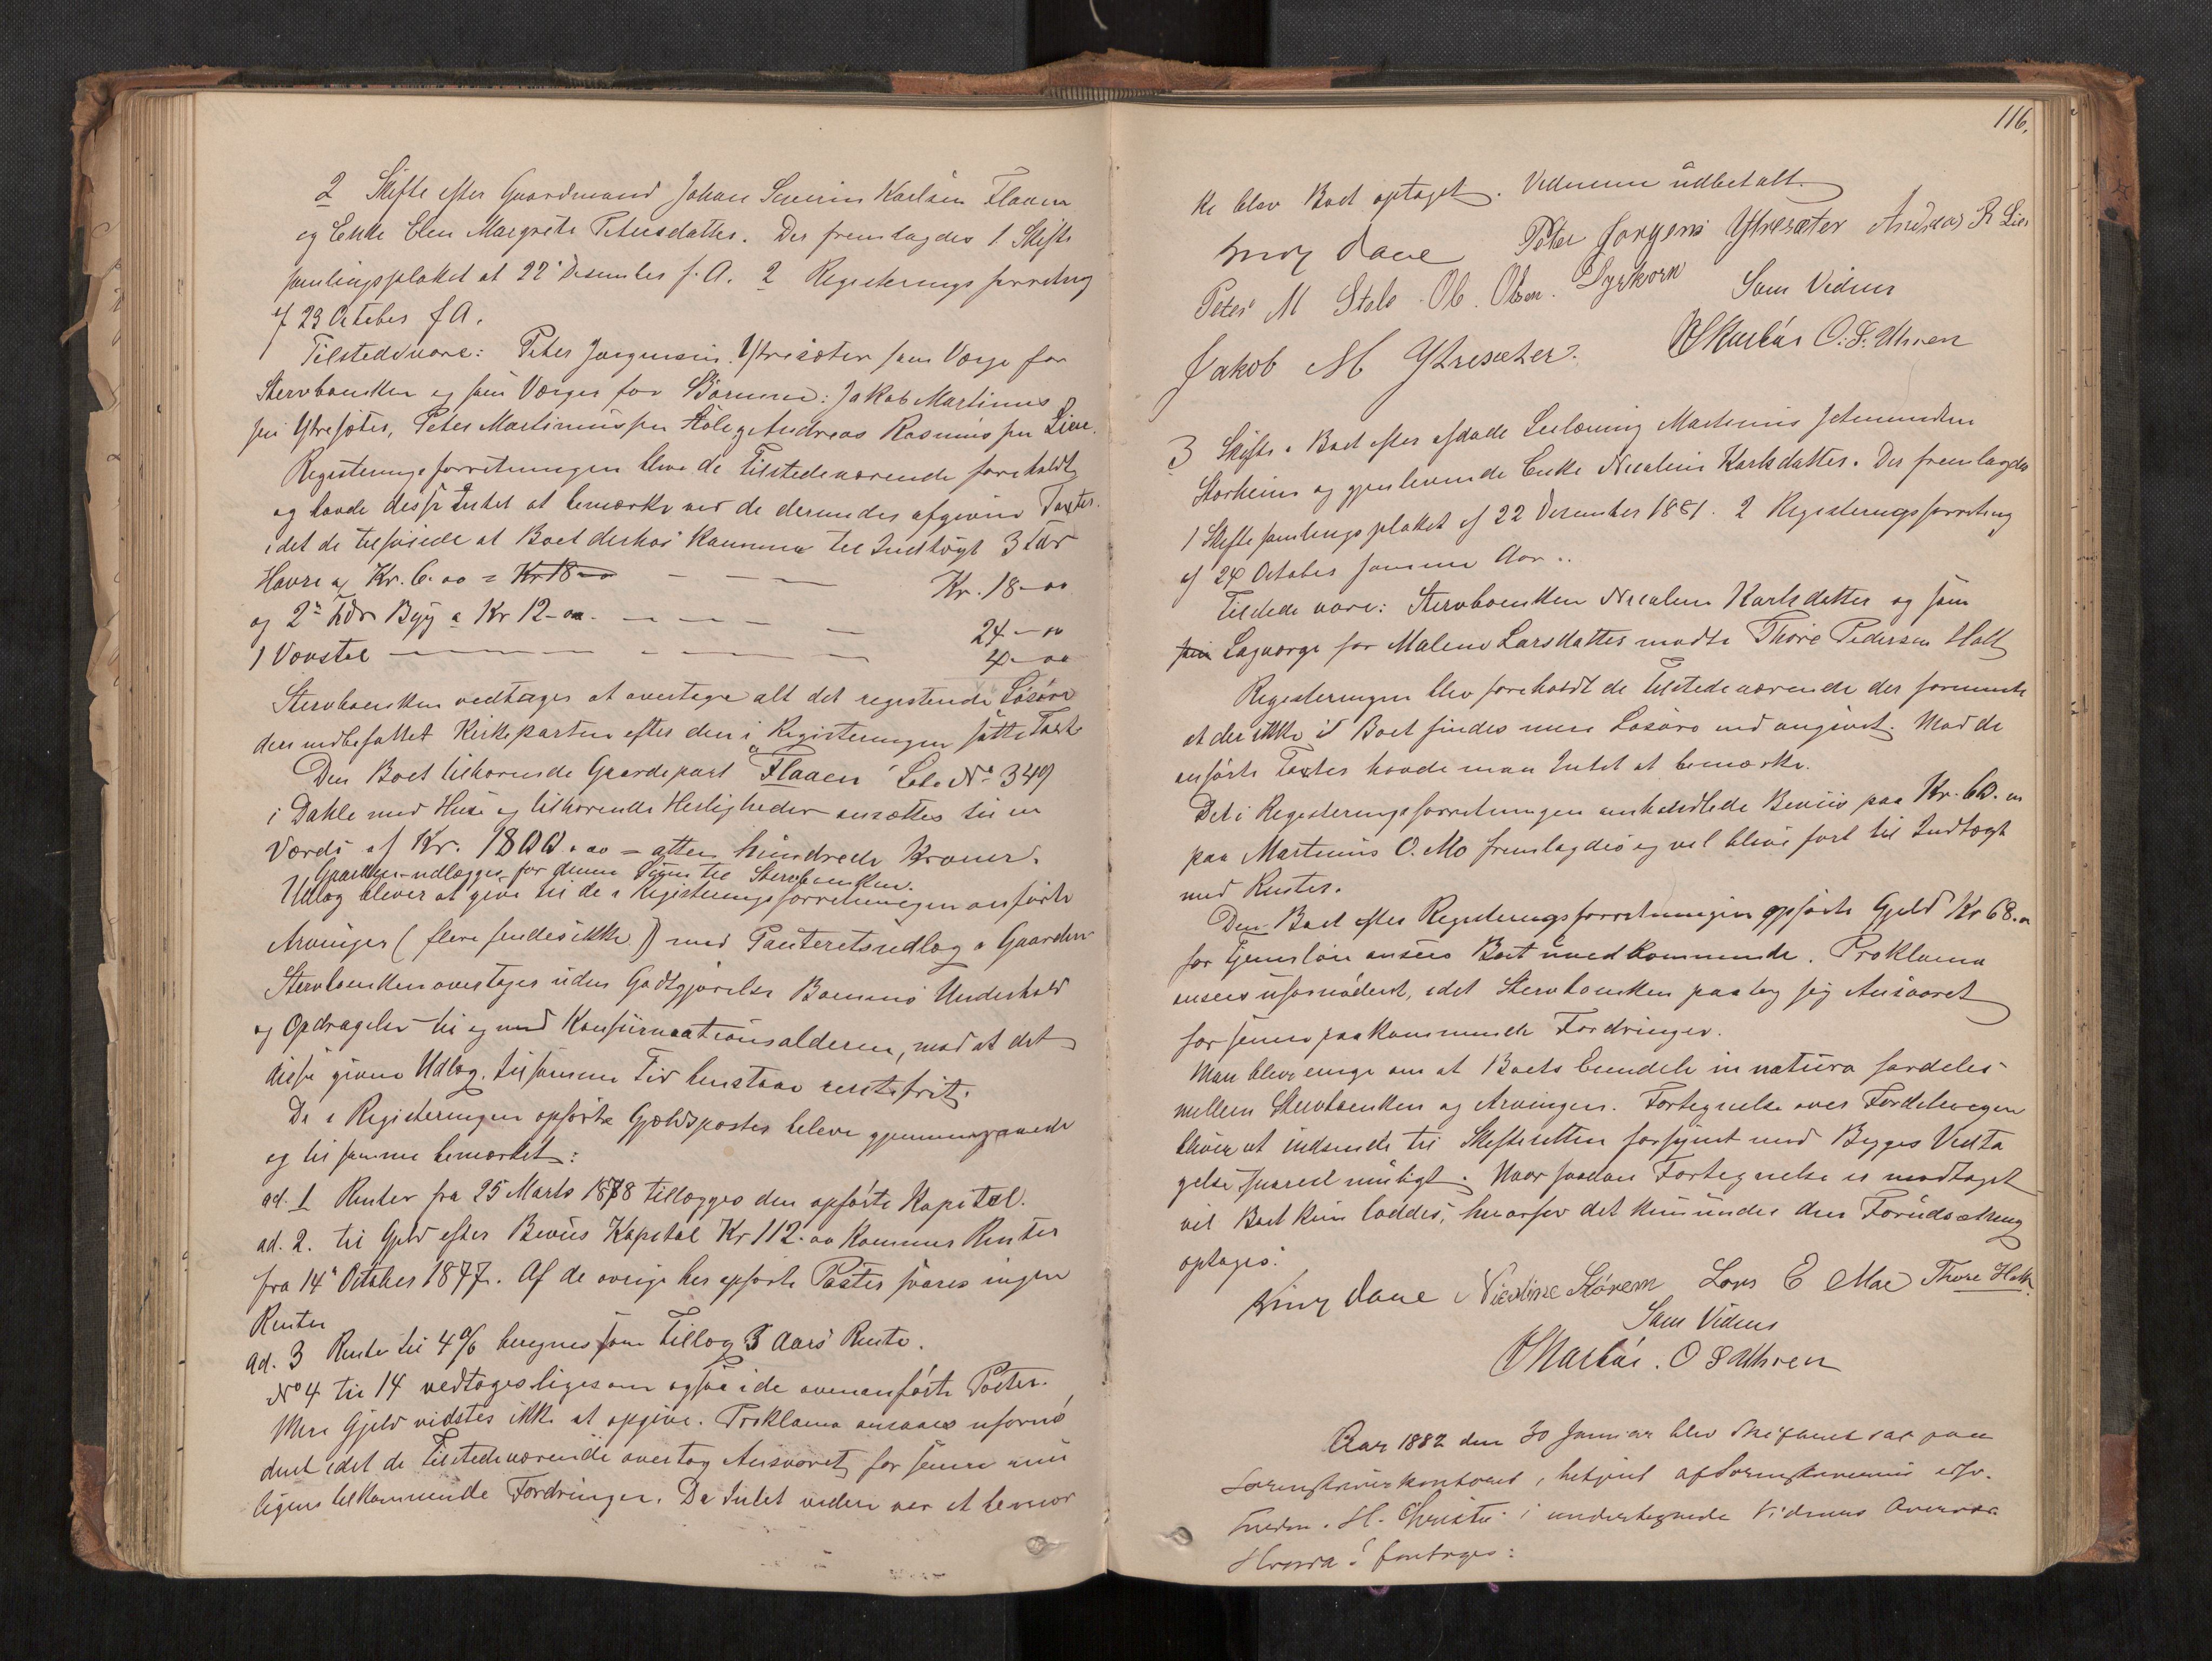 2 Skifte efter Gaardmand Johan Severin Karlsen Flaaen
og Enke Elen Margrete Petersdatter. Der fremlagdes 1 Skifte
samlingsplakat af 22 Desember f. A. 2 Registerings forretning
af 29 October f A.
Tilstede vare: Peter Jørgensen Ytresæter som Værge for
Stervboenken og som Værger for Børnene: Jakob Martinus
sen Ytresæter, Peter Martinussen Støle og Andreas Rasmussen Lien.
Registeringsforretningen blev de Tilstedeværende foreholdt
og havde disse Intet at bemærke ved de derunder afgivne Taxter.
idet de tilføiede at Boet derhos kommer til Indtægt 3 Tdr
Havre a Kr. 6.00 = Kr 18-00 Kr. 18-00
og 2 Tdr Byg a Kr 12-00. 24-00
1 Vævstol 4-00
Stervboenken vedtages at overtage alt det registerede Løsøre
deri indbefattet Kirkeparten efter den i Registeringen satte Taxt
Den Boet tilhørende Gaardepart Flaaen Løbe No 349
i Dahle med Huse og tilhørende Herligheder ansættes til en
Værdi af Kr. 1800.00 = atten hundrede Kroner.
Gaarden udlægges for denne Sum til Stervboenken.
Udlæg bliver at give til de i Registeringsforretningen anførte
Arvinger (flere findes ikke) med Panteretsudlæg i Gaarden
Stervboenken overtager uden Godtgjørelse Børnenes Underhold
og Opdragelse til og med Konfirmationsalderen, mod at det
disse givne Udlæg til samme Tid henstaar rentefrit.
De i Registeringen opførte Gjældsposter bleve gjennemgaaede
og til samme bemærket:
ad. 1 Renter fra 25 Marts 1878 tillægges den opførte Kapital.
ad. 2. til Gjeld efter Beviis Kapital Kr 112.00 kommer Renter
fra 14 October 1877. Af de øvrige her opførte Poster svares ingen
Renter
ad. 3 Renter til 4% beregnes som Tillæg 3 Aars Rente.
No 4 til 14 vedtages ligesom ogsaa de ovenanførte Poster.
Mere Gjeld vidstes ikke at opgive. Proklama ansaaes ufornø
dent idet de Tilstedeværende overtog Ansvaret for senere mu
ligens tilkommende Fordringer. Da Intet videre var at bemær
116.
ke blev Boet optaget. Vidnerne udbetalt.
Peter Jørgens Ytresæter Andreas R Lien
Peter M Støle Ole Olsen Dyrkorn Som Vidner
Jakob M Ytresæter. O. S. Uhren
3 Skifte i Boet efter afdøde Leilænding Martinus Jetmundsen
Storheim og gjenlevende Enke Nicoline Karlsdatter. Der fremlagdes
1 Skiftesamlingsplakat af 22 Desember 1881. 2 Registeringsforretning
af 24 October samme Aar.
Tilstede vare: Stervboenken Nicoline Karlsdatter og som
Lagværge for Malene Larsdatter mødte Thore Pedersen Holt
Registeringen blev foreholdt de Tilstedeværende der formente
at der ikke i Boet findes mere Løsøre end angivet. Mod de
anførte Taxter havde man Intet at bemærke.
Det i Registeringsforretningen omhandlede Beviis paa Kr. 60.00
paa Martinus O. Mo fremlagdes og vil blive ført til Indtægt
med Renter.
Den Boet efter Registeringsforretningen opførte Gjeld Kr 68.00
for Tjenesløn ansees Boet uvedkommende. Proklama
ansees ufornødent, idet Stervboenken paatog sig Ansvaret
for senere paakommende Fordringer.
Man blev enige om at Boets Eiendele in natura fordeles
mellem Stervboenken og Arvingen. Fortegnelse over Fordelingen
bliver at indsende til Skifteretten forsynet med Begges Vedta
gelse snarest muligt. Naar saadan Fortegnelse er modtaget
vil Boet kun loddes, hvorfor det kun under den Forudsætning
optages.
Nicoline Storem Lars E Moe Thore Holt
Som Vidner
O S Uhren
Aar 1882 den 30 Januar blev Skifteret sat paa
Sorenskriverkontoret, betjent af Sorenskriverens
H. Christie i undertegnede Vidners Overvær
Hvorda foretoges: